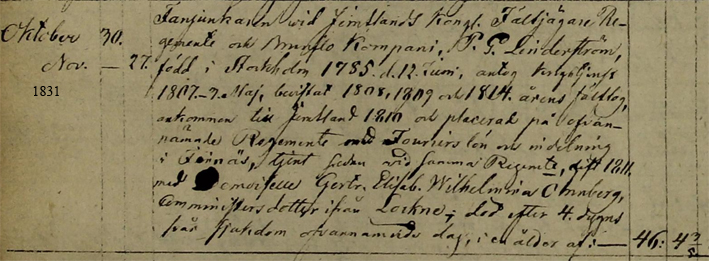 Oktober 30. Fanjunkaren wid Jemtlands Kongl. Fältjägare Re-
Nov. — 27. gemente och Brunflo Kompani, P. G. Linderström,
1831 född i Stockholm 1785. d. 12. Juni, antog
1807. Maj, bevistat 1808, 1809 och 1814. årens fälttog,
ankommen till Jemtland 1810 och placerad på ofvan-
nämnde Regemente med Fouriers lön och indelning
i tjent sedan wid samma Regemente, gift 1811.
med Demoiselle Gertr. Elisab. Wilhelmina
Comministers dotter ifrån Lockne; död efter 4. dygns
sjukdom ofvannämnde dag, i en ålder af: — 46: 4